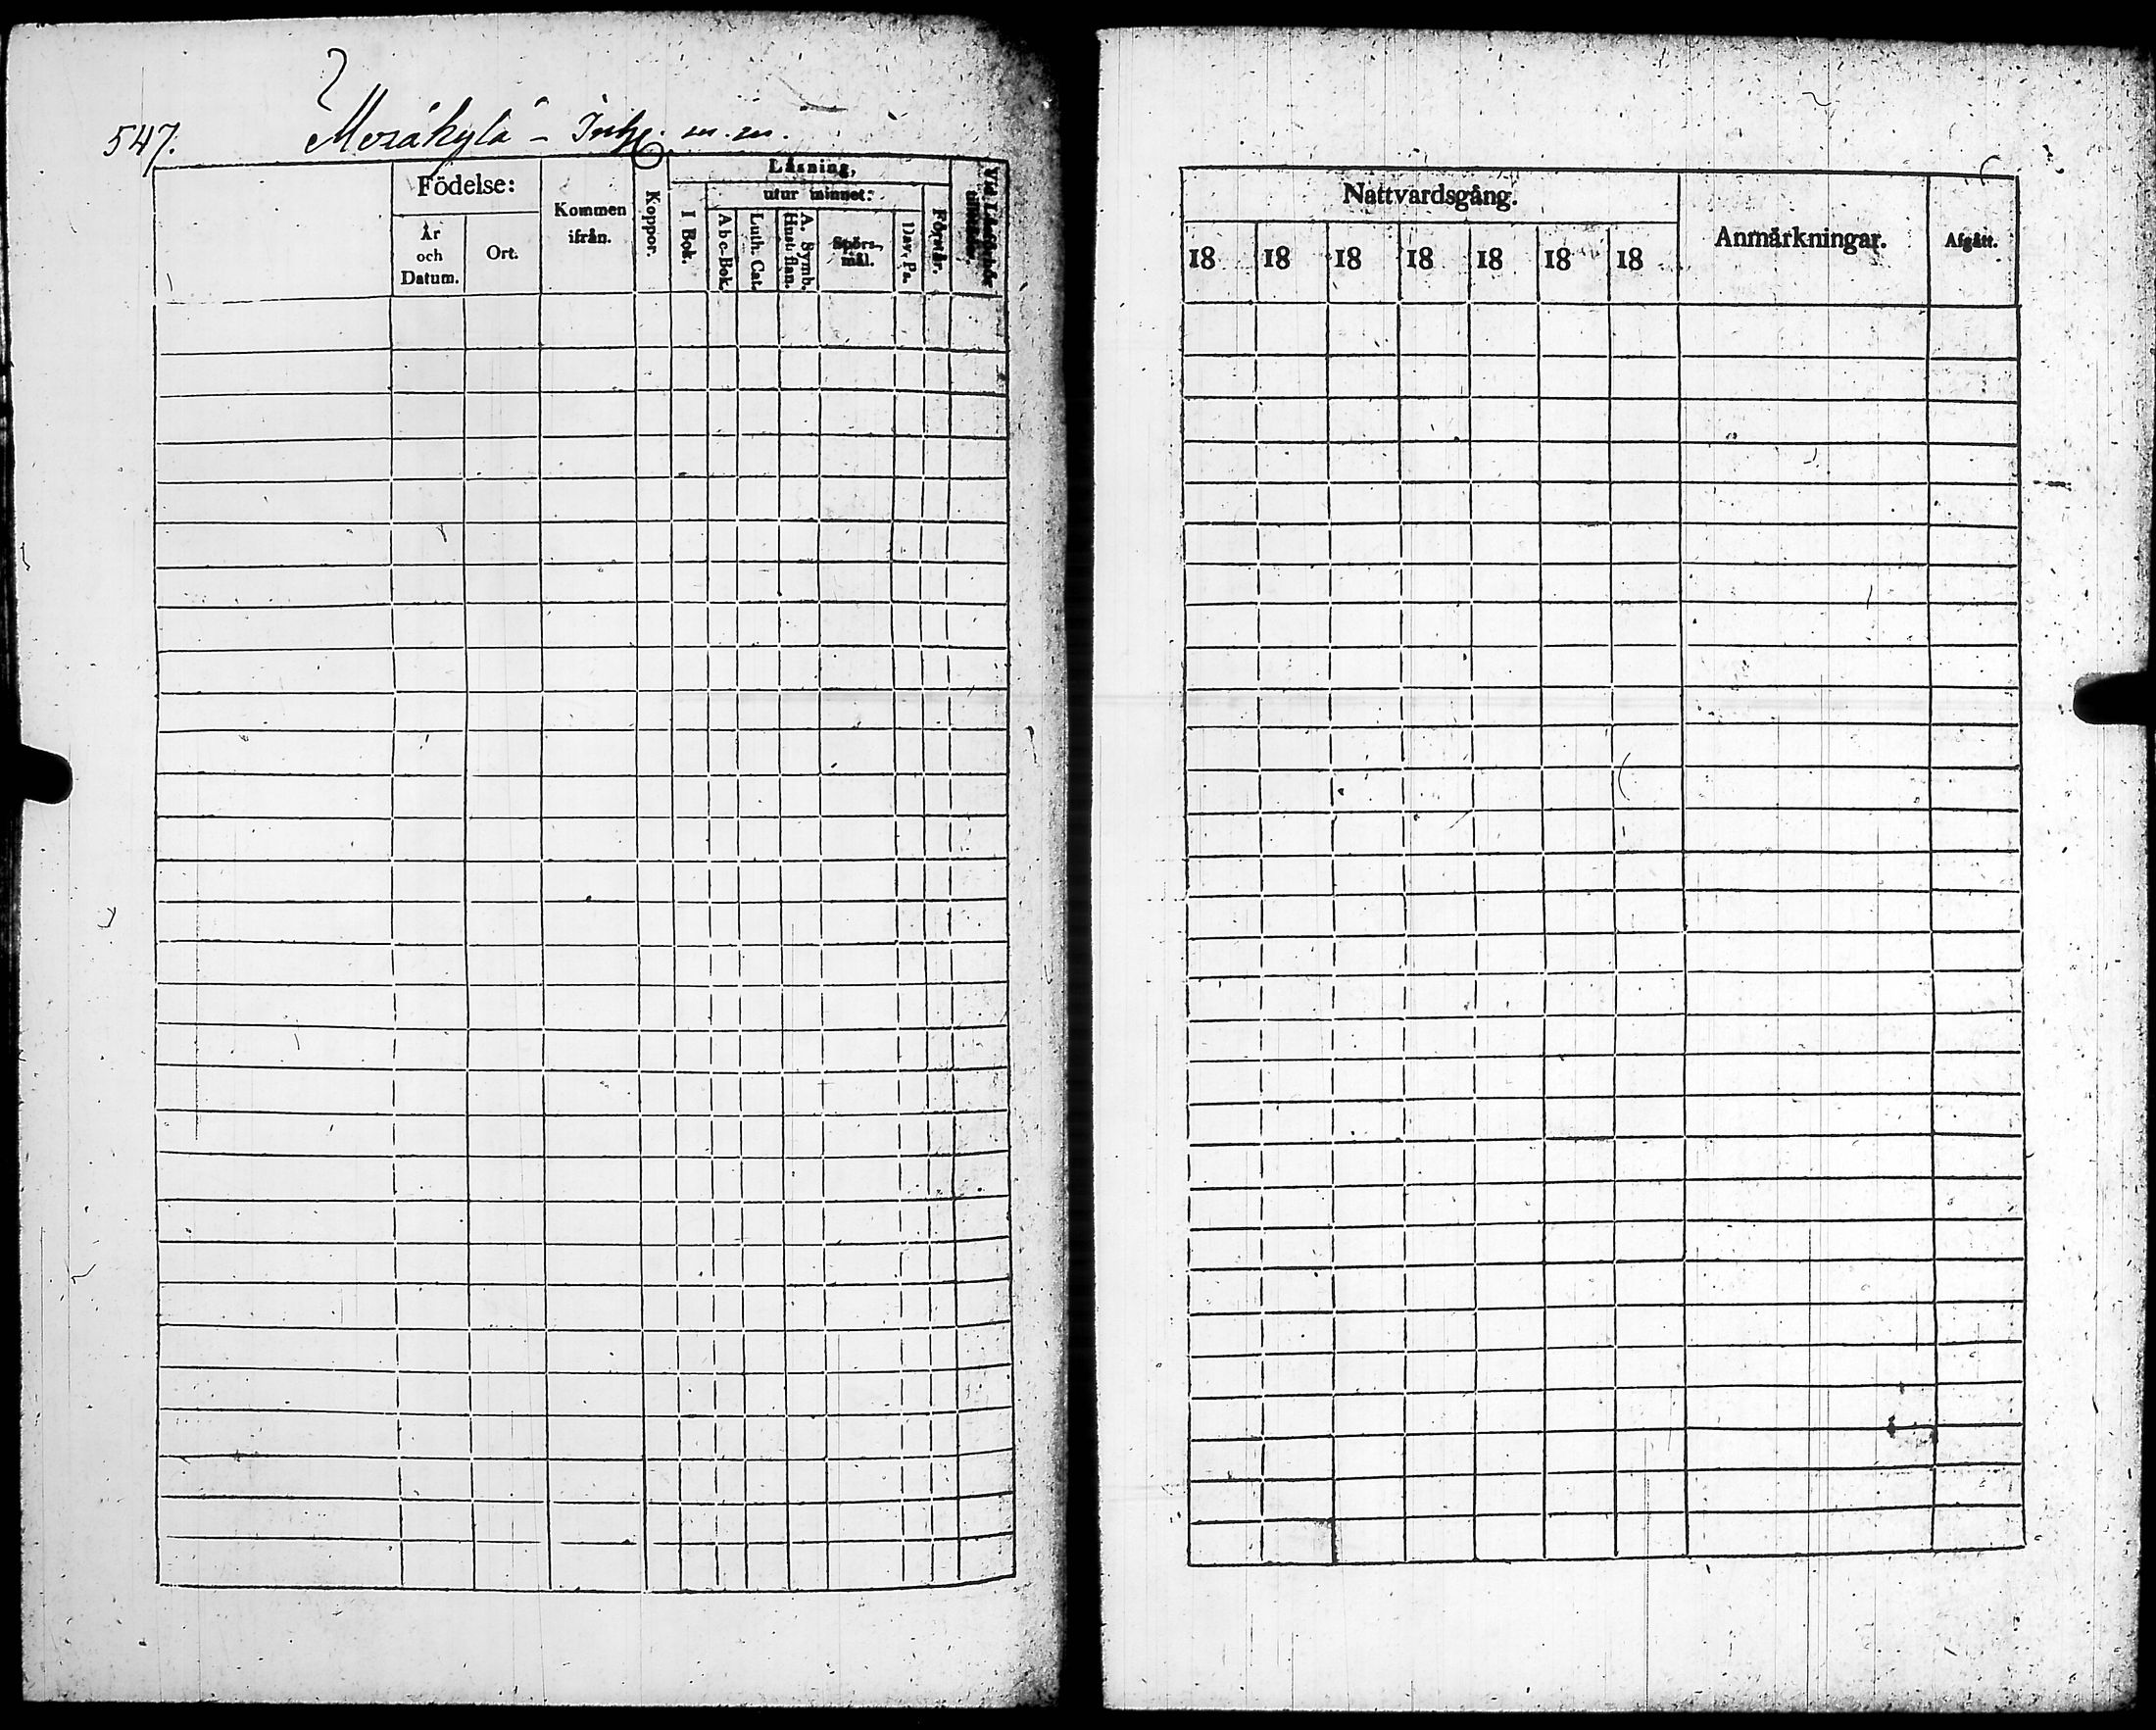 547. Mosäkylä - Inhs. m. m.
Födelse:
År
och
Datum.
Ort.
Kommen
ifrån.
Koppor.
Läsning,
utur minnet:
I Bok.
Abc-Bok.
Luth. Cat.
A. Symb.
Hust. flan.
Spörs-
mål.
Dav. Ps.
Förstår.
Vid Läsförhör
Nattvardsgång.
18 18 18 18 18 18 18
Anmärkningar.
Afgått.